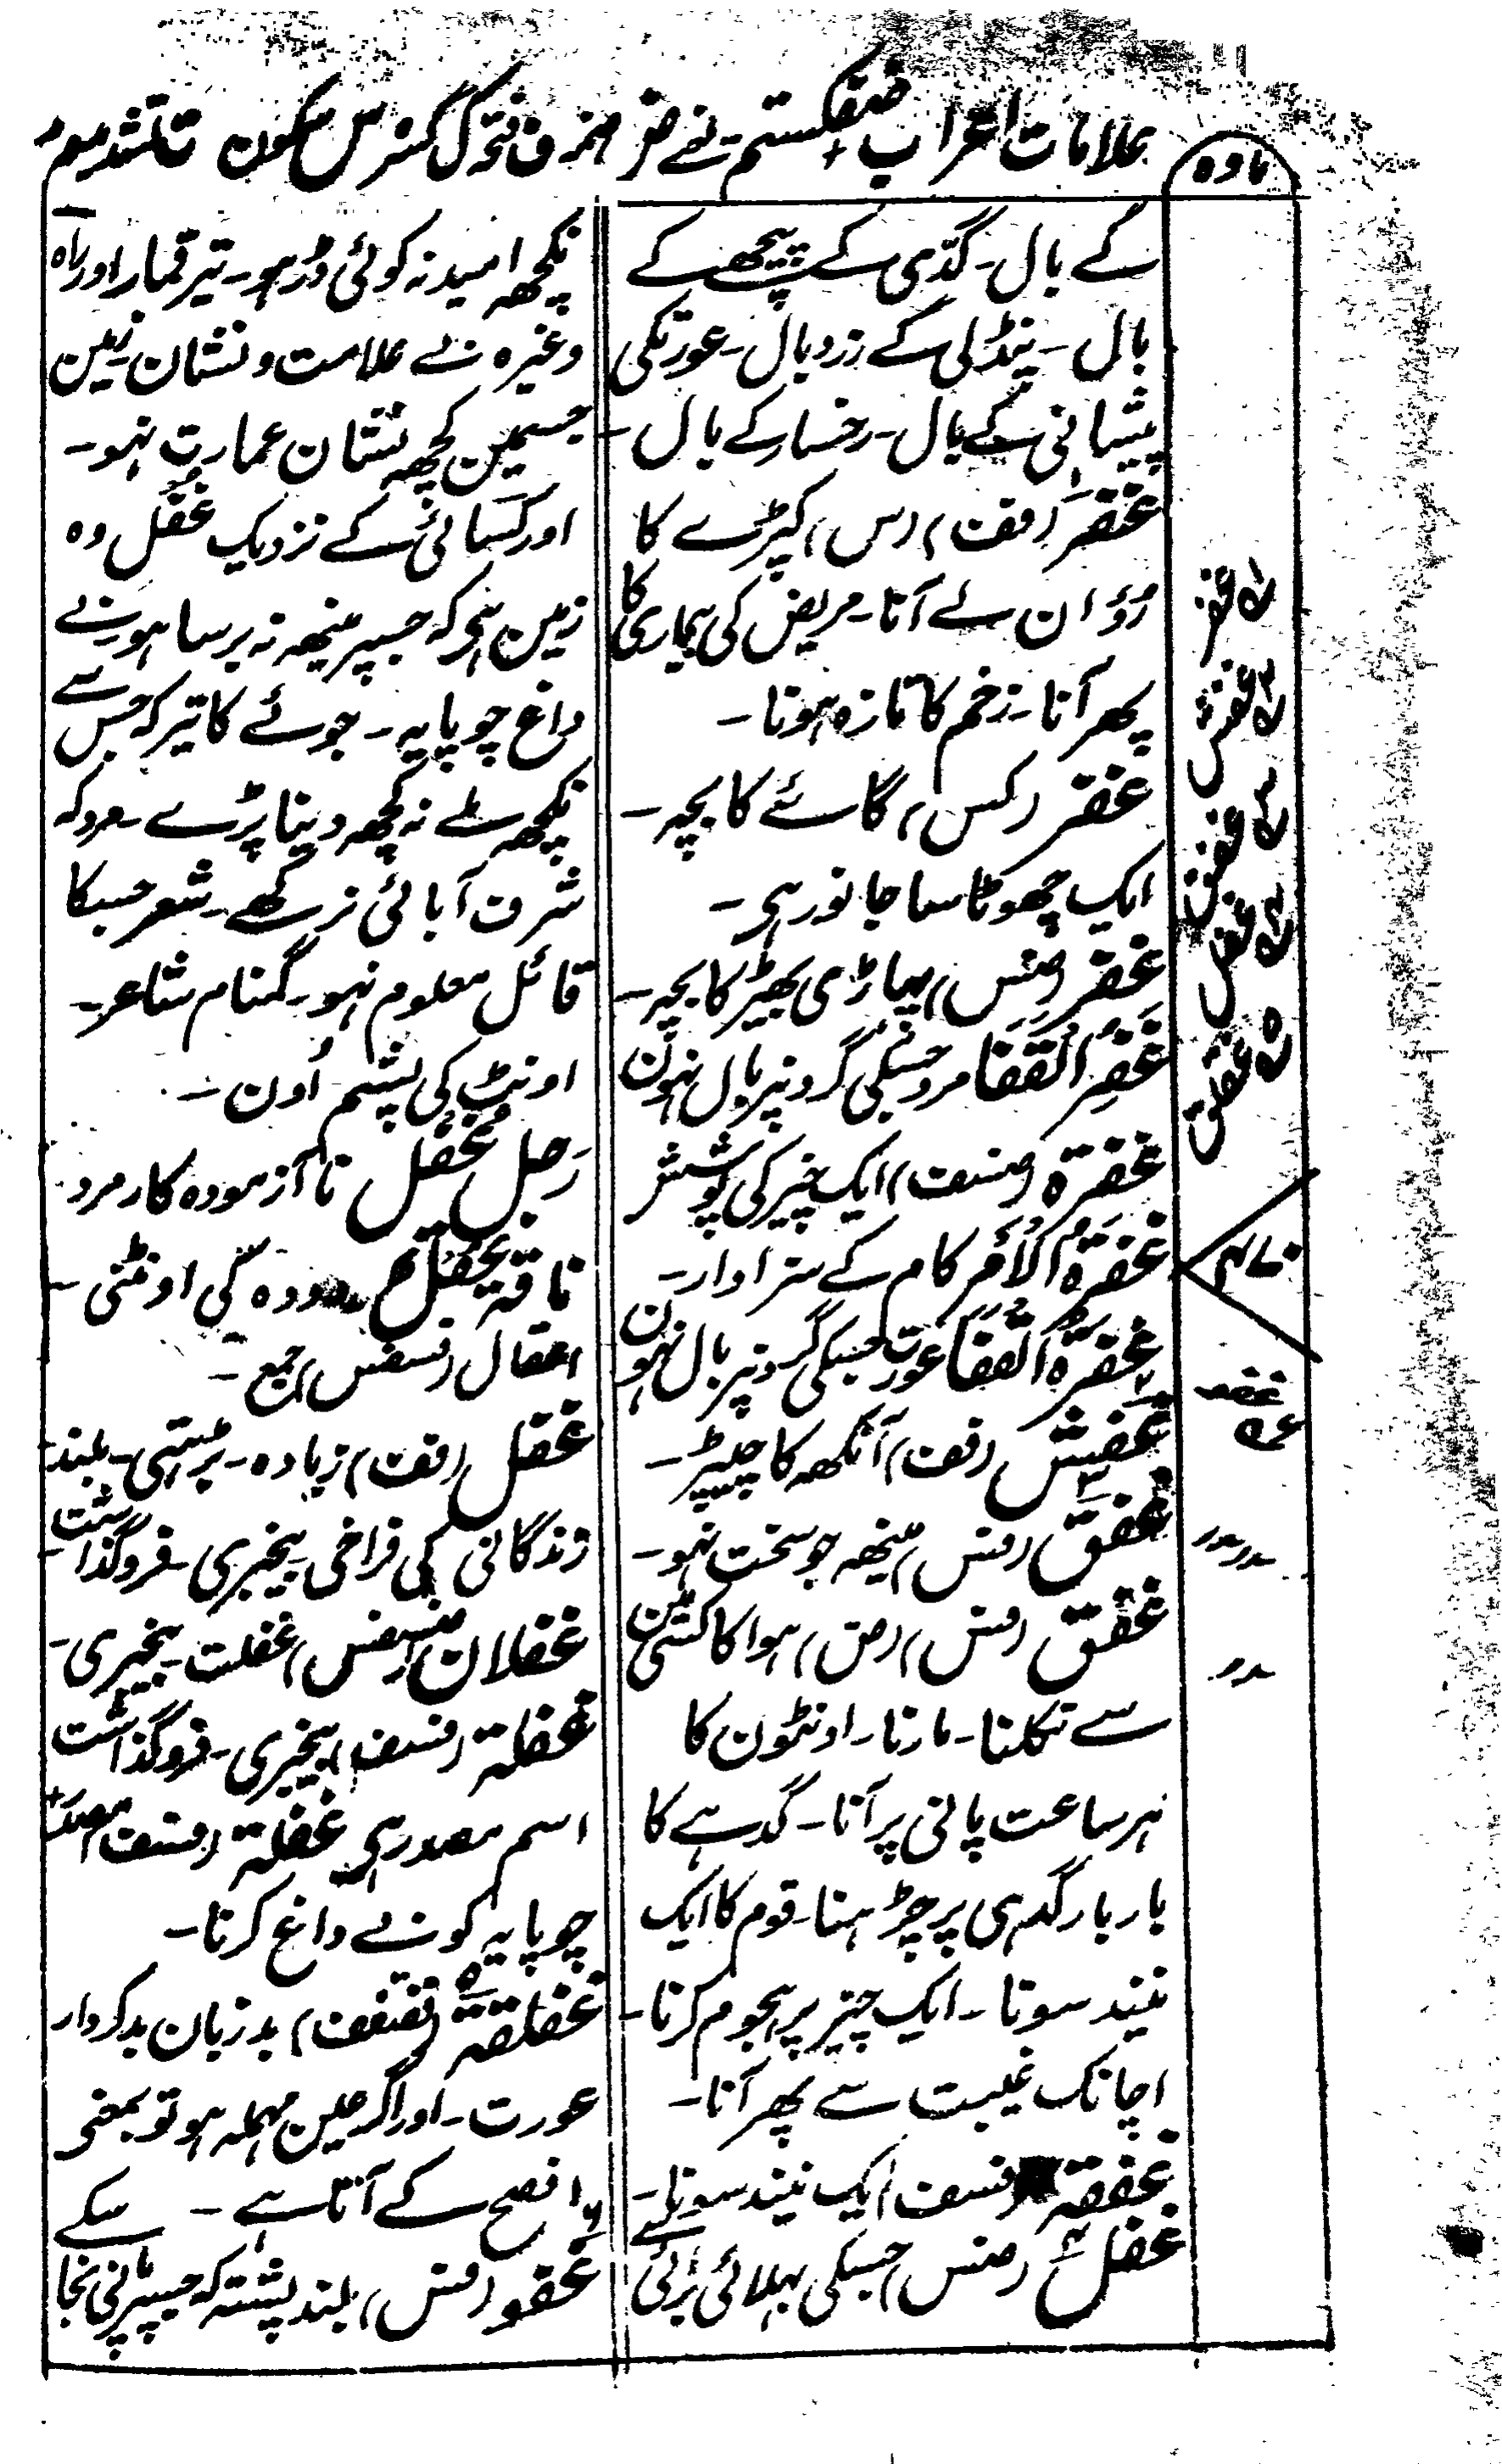 علامات اعراب ض فتح ک کسر س سکون ت تشدید
مادہ
کے بال۔ گدّی کے پیچھے کے
بال۔ پنڈلی کے زرد بال۔ عورتکی
پیشانی کے بال۔ رخسار کے بال۔
غَفَر (فف) (س) کپڑے کا
رُوٴان لے آنا۔ مریض کی بیماری کا
پھر آنا۔ زخم کا تازہ ہونا۔
غفر (کس) گائے کا بچہ۔
ایک چھوٹا سا جانور ہی۔
غفر (ضس) پہاڑی بھیڑ کا بچہ۔
غَفِرُ الْقَفَا مرد جسکی گردنپر بال نہون
غفرة (ضسف) ایک چیز کی پوشش
غفرةُ الأمر کام کے سزاوار۔
غفرةُ القفا عورت جسکی گردنپر بال نہون
غَفَش (فف) آنکھہ کا چیپڑ۔
غفق (فس) مینھہ جو سخت نہو۔
غفق (فس) (ض) ہوا کا کشتی مین
سے نکلنا۔ مارنا۔ اونٹون کا
ہر ساعت پانی پر آنا۔ گدہے کا
بار بار گدہی پر چڑہنا۔ قوم کا ایک
نیند سونا۔ ایک چیز پر ہجوم کرنا۔
اچانک غیبت سے پھر آنا۔
غفقة (فسف) ایک نیند سونا۔
غفل (ضس) جسکی بہلائی بُرائی سے
نکچھہ امید نہ کوئی ڈر ہو۔ تیر قمار اور راہ
وغیرہ بے علامت و نشان۔ زمین
جسمین کچھہ نشان عمارت نہو۔
اور کسائی کے نزدیک غُفْل وہ
زمین ہی کہ جسپر مینھہ نہ برسا ہو۔ بے
داغ چوپایہ۔ جوئے کا تیر کہ جس سے
نکچھہ ملے نہ کچھہ دینا پڑے۔ مرد کہ
شرف آبائی نرکھے۔ شعر جسکا
قائل معلوم نہو۔ گمنام شاعر۔
اونٹ کی پشم۔ اُون۔
رَجل غُفْل نا آزمودہ کار مرد۔
ناقة غفل دودہ کی اونٹنی۔
اغفال (فسفس) جمع۔
غفل (فف) زیادہ۔ بلند
زندگانی کی فراخی۔ بیخبری۔ فروگذاشت
غفلان (ضسفس) غفلت۔ بیخبری۔
غفلة (فسف) بیخبری۔ فروگذاشت
اسم مصدر ہی غفلة (فسف) مصدر
چوپایہ کو بے داغ کرنا۔
غفلقة (فففف) بد زبان بدکردار
عورت۔ اور اگر عین مہملہ ہو تو بمعنی
افصح کے آتا ہے۔
غفو (فس) بلند پشتہ کہ جسپر پانی نجا سکے
غفر
غفش
غفق
غفل
غفلق
غفو